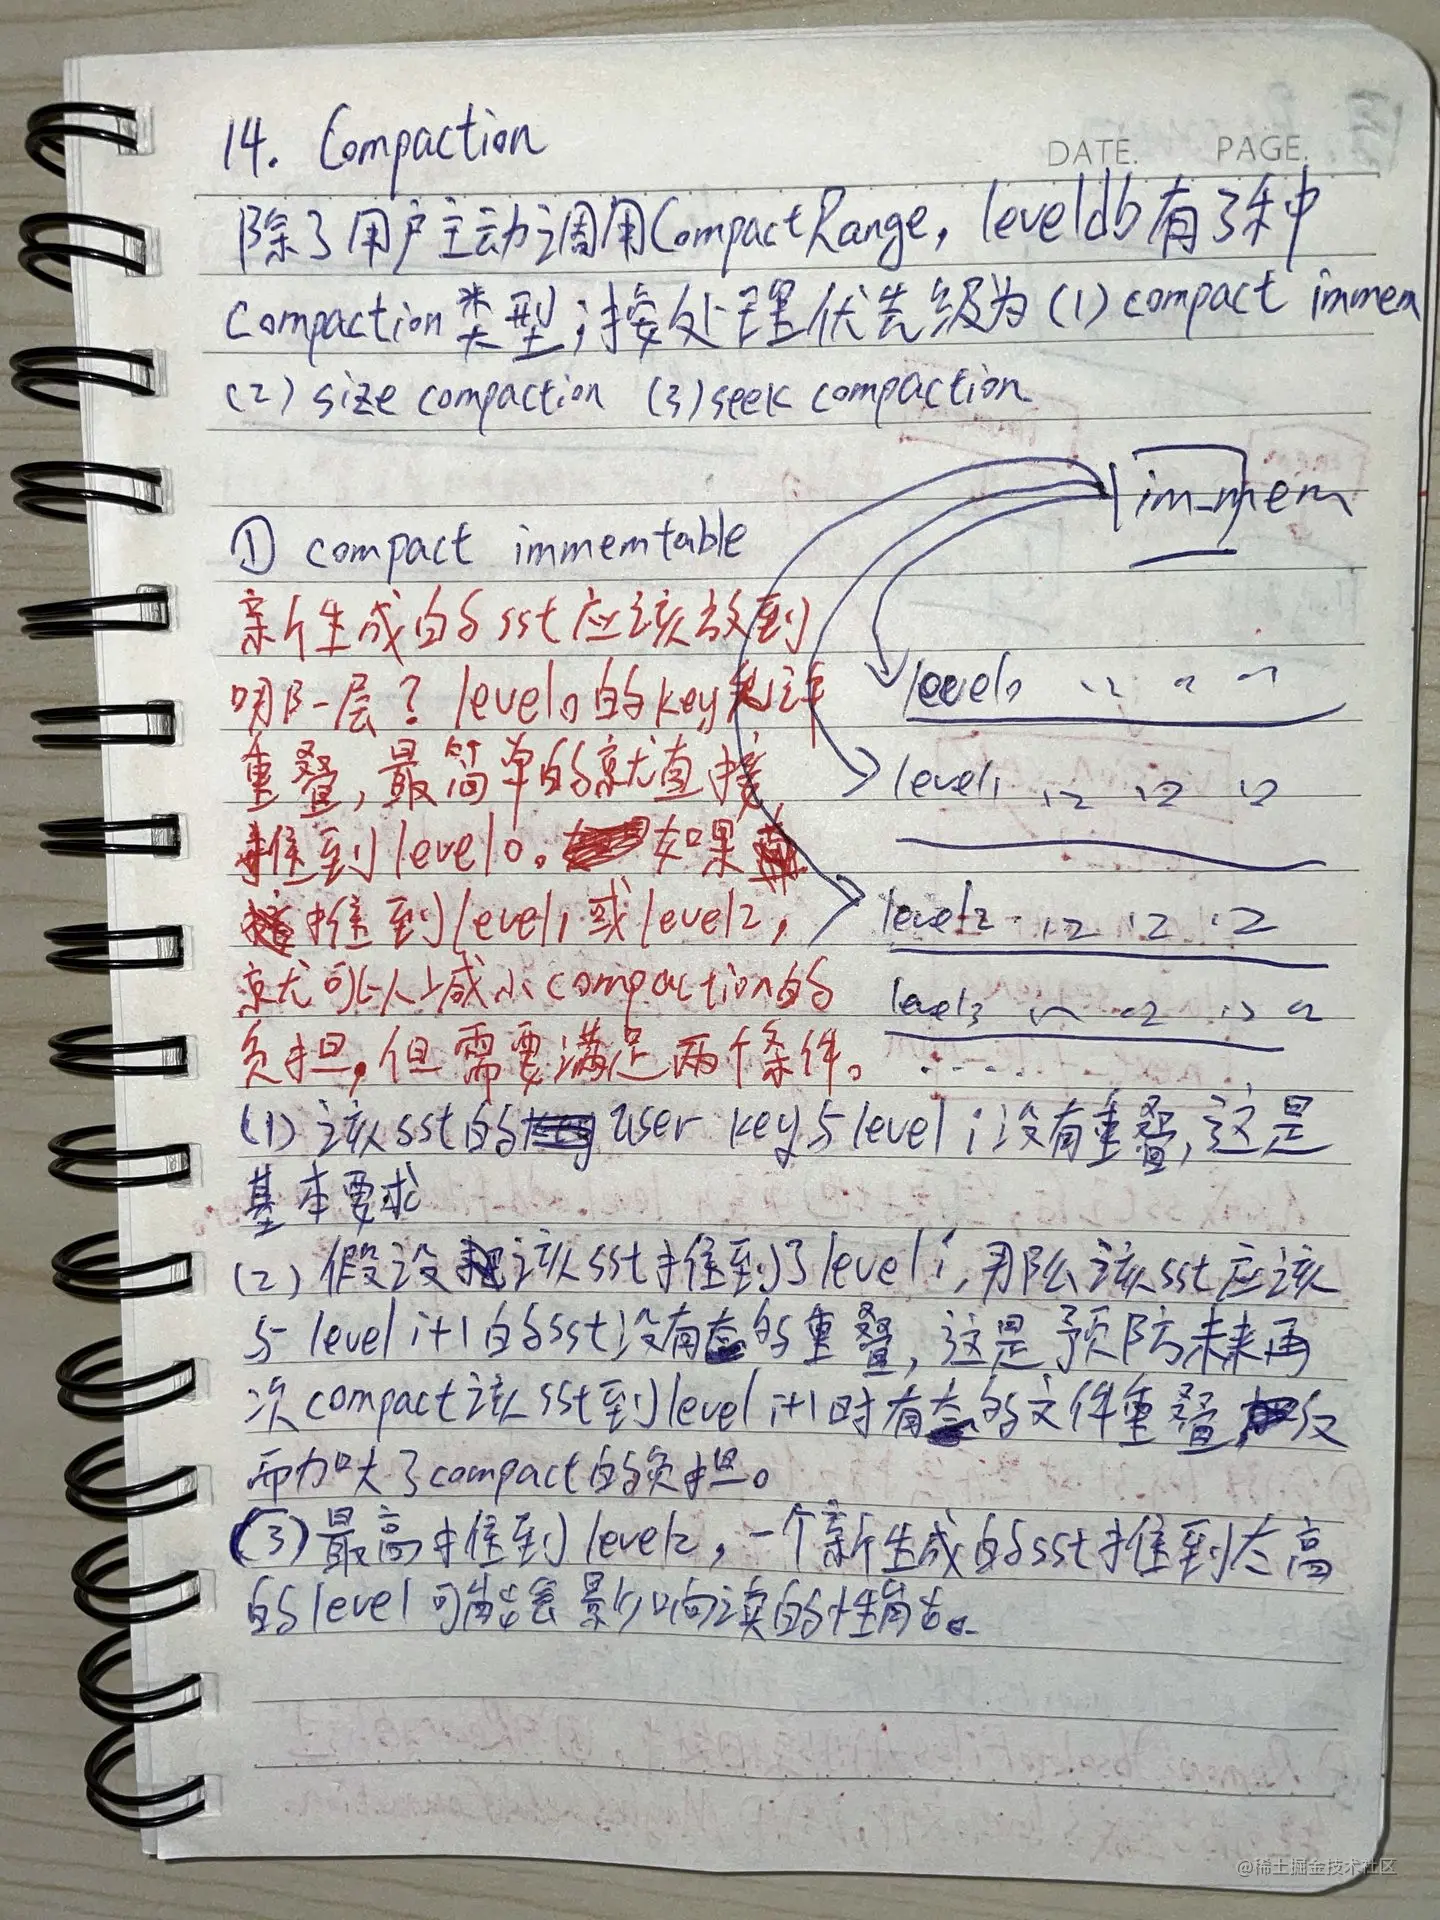 14. Compaction
DATE. PAGE.
除了用户主动调用CompactRange, leveldb有3种
Compaction类型;按处理优先级为(1) compact immem
(2) size compaction (3) seek compaction
im_mem
① compact immemtable
新生成的sst应该放到
哪一层? level0的key允许
重叠,最简单的就直接
推到level0。如果
推到level1或level2,
就可以减小compaction的
负担,但需要满足两个条件。
level0
level1
level2
level3
.....
(1) 该sst的user key与level i没有重叠,这是
基本要求
(2) 假设该sst推到了level i,那么该sst应该
与level i+1的sst没有太多的重叠,这是预防未来再
次compact该sst到level i+1时有太多的文件重叠,反
而加大了compact的负担。
(3) 最高推到level2,一个新生成的sst推到太高
的level可能会影响读的性能。
@稀土掘金技术社区